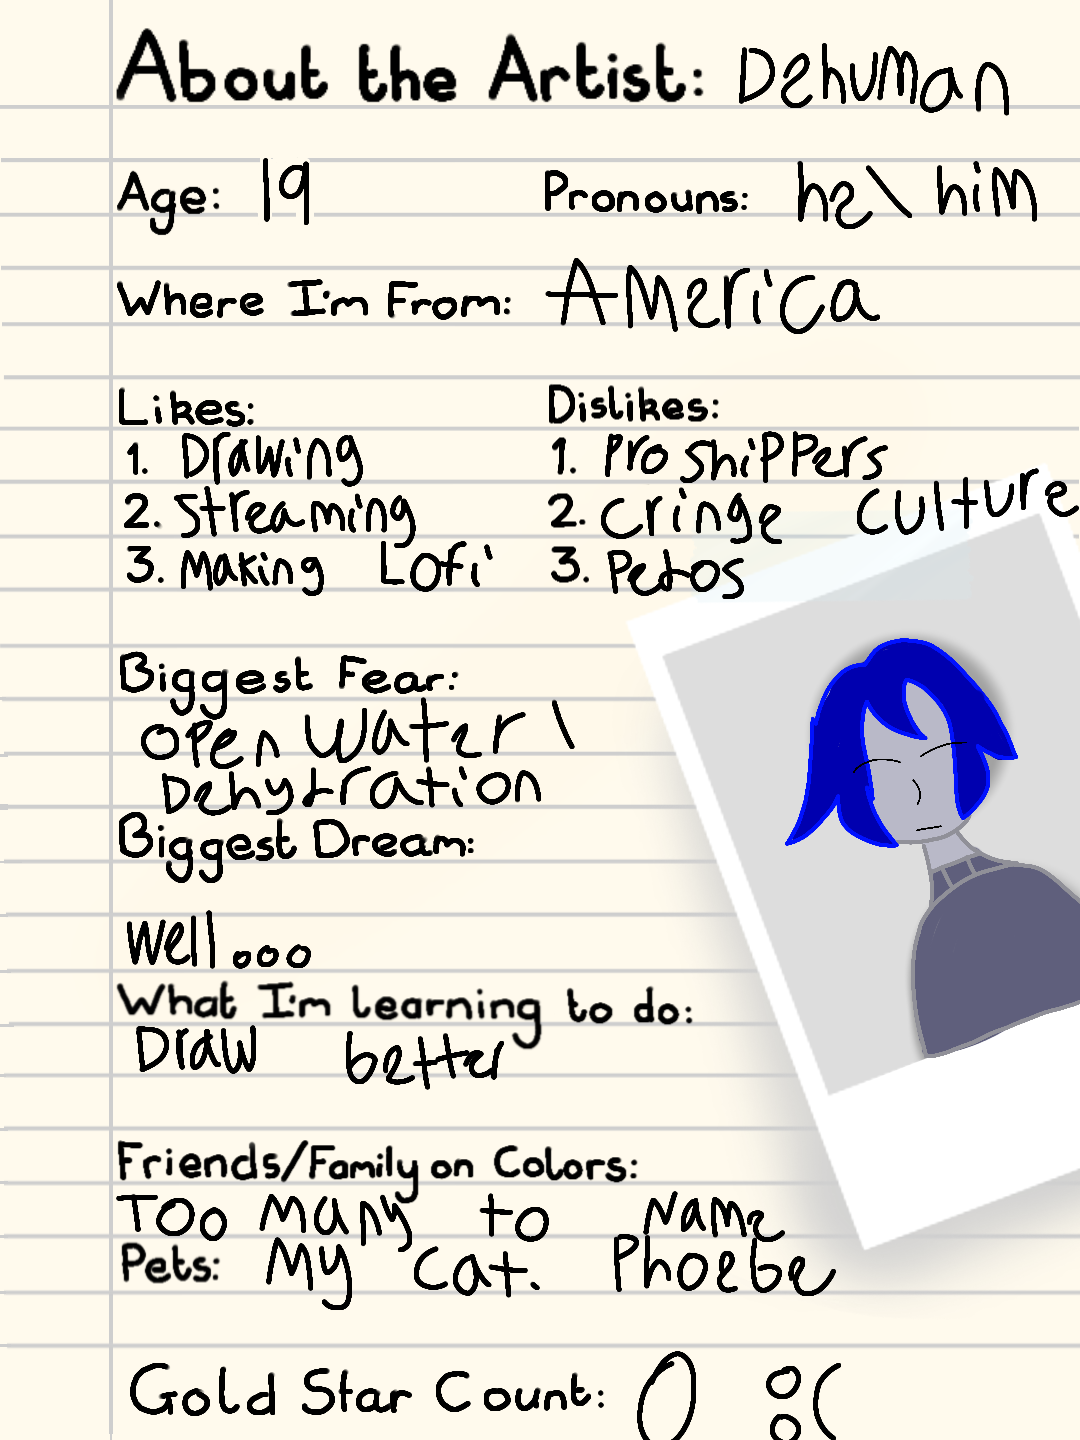 About the Artist: Dehuman
Age: 19 Pronouns: he\him
Where I'm From: America
Likes: Dislikes:
1. Drawing 1. Pro shippers
2. Streaming 2. Cringe culture
3. Making Lofi 3. Pedos
Biggest Fear:
Open Water \
Dehydration
Biggest Dream:
Well...
What I'm learning to do:
Draw better
Friends/Family on Colors:
Too many to Name
Pets: My cat. Phoebe
Gold Star Count: 0 :(